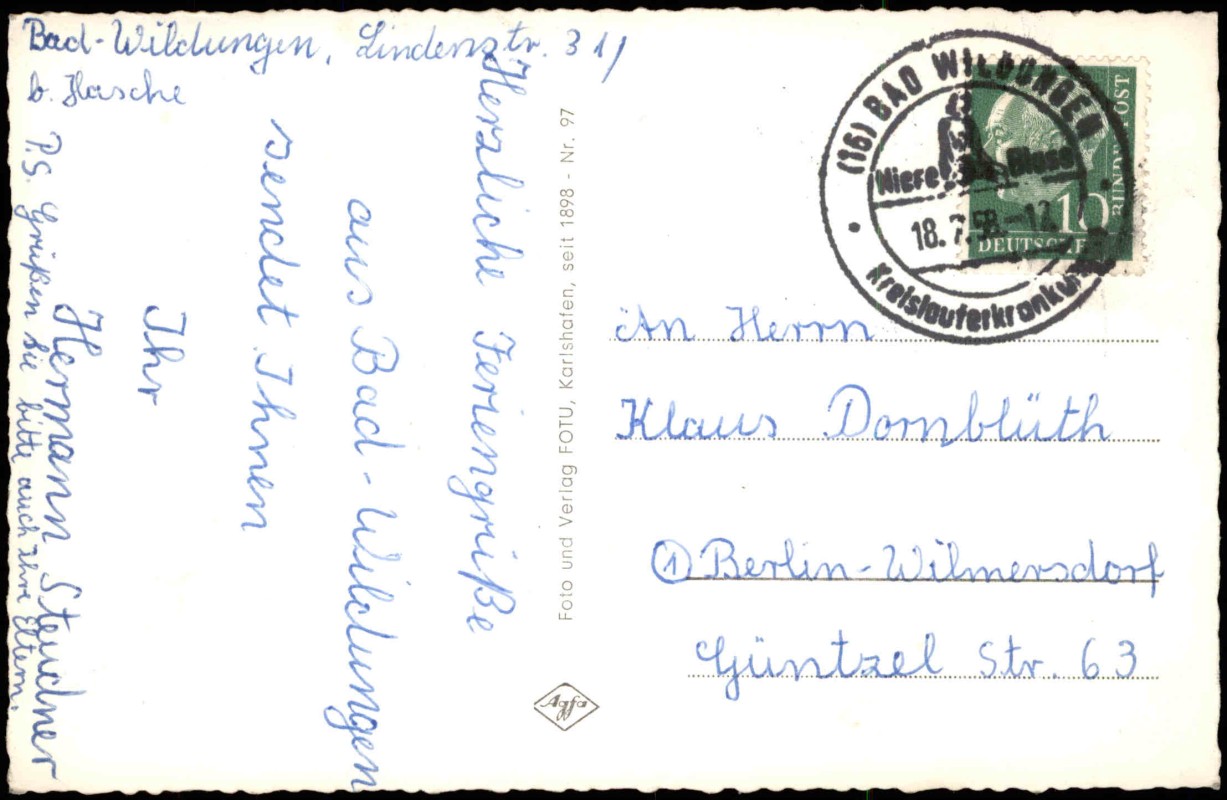 Bad-Wildungen, Lindenstr. 31/
b. Hasche
Herzliche Feriengrüße
aus Bad-Wildungen
sendet Ihnen
Ihr
Hermann Steudner
P.S. Grüßen Sie bitte auch Ihre Eltern.
Foto und Verlag FOTU, Karlshafen, seit 1898 - Nr. 97
Agfa
(16) BAD WILDUNGEN
Niere Blase
18.7.58.-12
Kreislauferkranku
DEUTSCHE
BUNDESPOST
10
An Herrn
Klaus Dornblüth
① Berlin-Wilmersdorf
Güntzel Str. 63